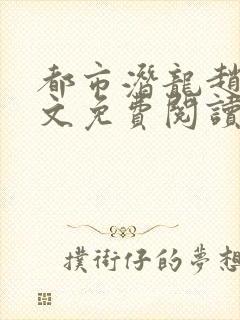 都市潛龍趙
文免費閱讀
撲街仔的夢想